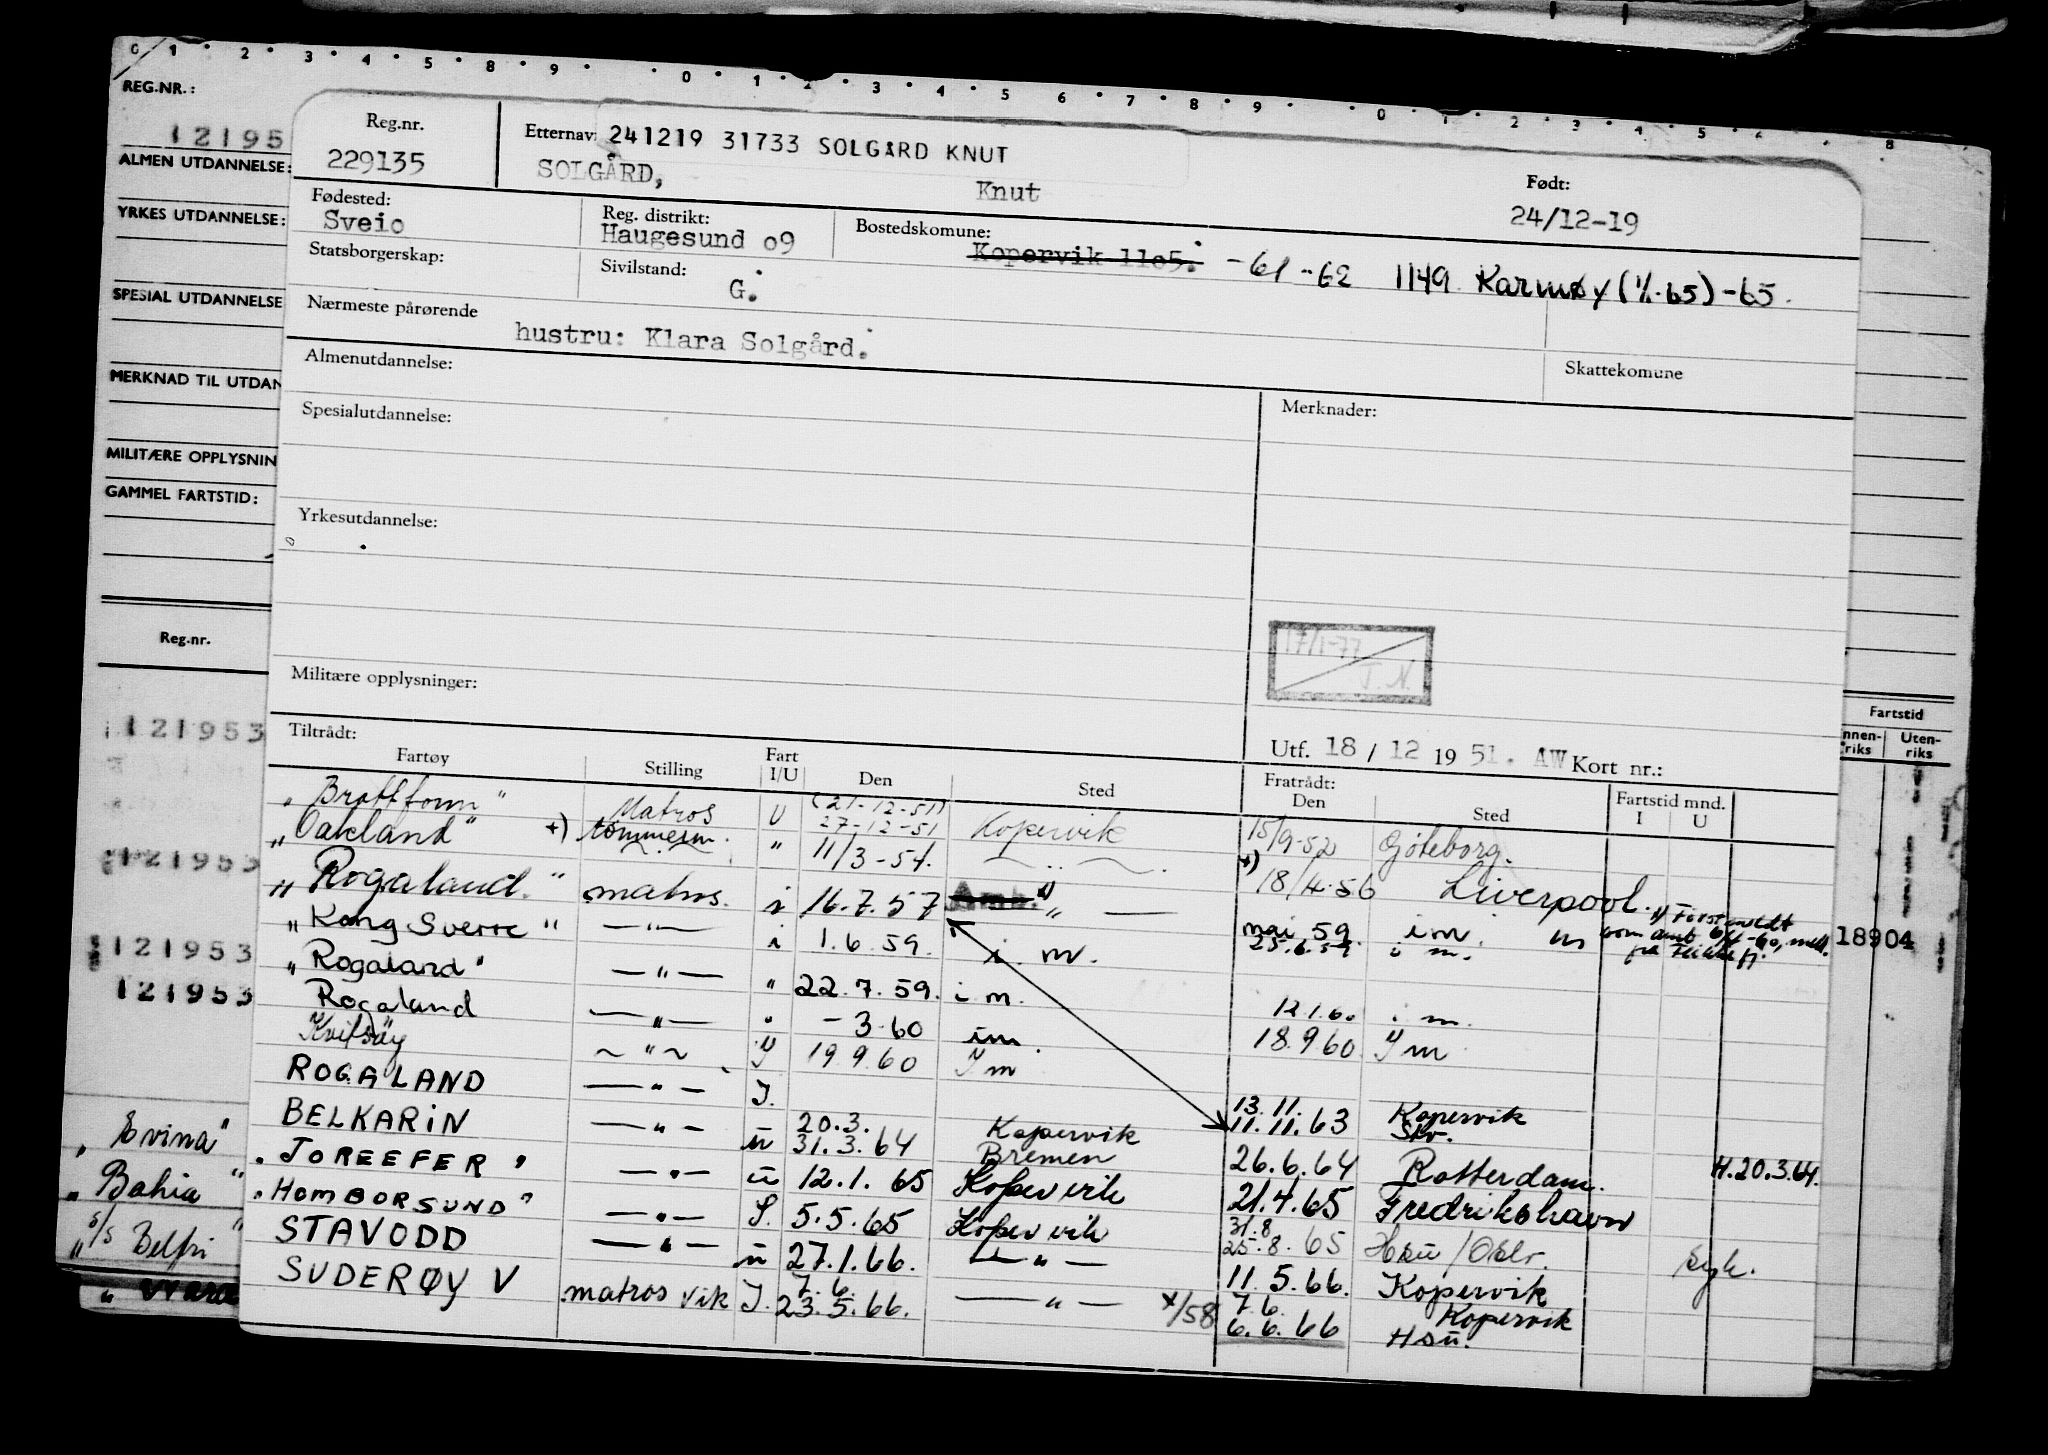 0 1 2 3 4 5 8 9 0 1 2 3 4 5 6 7 8 9 0 1 2 3 4 5 8
REG.NR.:
12195
ALMEN UTDANNELSE:
YRKES UTDANNELSE:
SPESIAL UTDANNELSE
MERKNAD TIL UTDAN
MILITÆRE OPPLYSNIN
GAMMEL FARTSTID:
Reg.nr.
121953
121953
121953
121953
"Evina"
"Bahia"
"s/s Belfri"
Reg.nr.
229135
Etternav: 241219 31733 SOLGÅRD KNUT
SOLGÅRD, Knut
Født:
24/12-19
Fødested:
Sveio
Reg. distrikt:
Haugesund o9
Bostedskomune:
Kopervik 11o5. -61 -62 1149 Karmøy (1/1-65) -65.
Statsborgerskap:
Sivilstand:
G.
Nærmeste pårørende
hustru: Klara Solgård.
Skattekomune
Almenutdannelse:
Spesialutdannelse:
Merknader:
Yrkesutdannelse:
17/1-77
T.N.
Militære opplysninger:
Utf. 18 / 12 19 51. AW Kort nr.:
Tiltrådt:
Fartøy Stilling Fart I/U Den Sted
Fratrådt:
Den Sted Fartstid mnd. I U
Fartstid
Innen-riks Uten-riks
Matros U (21-12-51) 27-12-51 Kopervik 15/9-52 Göteborg.
"Oakland" *) tømmerm. " 11/3-54. *) 18/4-56 Liverpool.
"Rogaland." matros. i 16.7.57 " — mai 59. i m.
"Kong Sverre" —"— i 1.6.59. i. m. 25.6.59 i m.
18904
"Rogaland" —"— " 22.7.59. i m. 12.1.60 i m.
Rogaland —"— " -3-60 im. 18.9 60 I m
Kvitsøy ~"~ I 19.9.60 I m
ROGALAND —"— I. 13.11. 11.11.63 Kopervik Skv.
BELKARIN —"— u 20.3. 31.3.64 Kopervik Bremen 26.6.64 Rotterdam. H.20.3.64.
"JOREEFER" —"— u 12.1.65 Kopervik 21.4.65 Fredrikshavn
"HOMBORSUND" —"— I. 5.5.65 Kopervik 31.8 25.8.65 Hsu/Oslo. Syk.
STAVODD —"— u 27.1.66. —"— 11.5.66. Kopervik
SUDERØY V matros vik I. 7.6. 23.5.66. —"— x/58 7.6. 6.6.66 Kopervik Hsu.